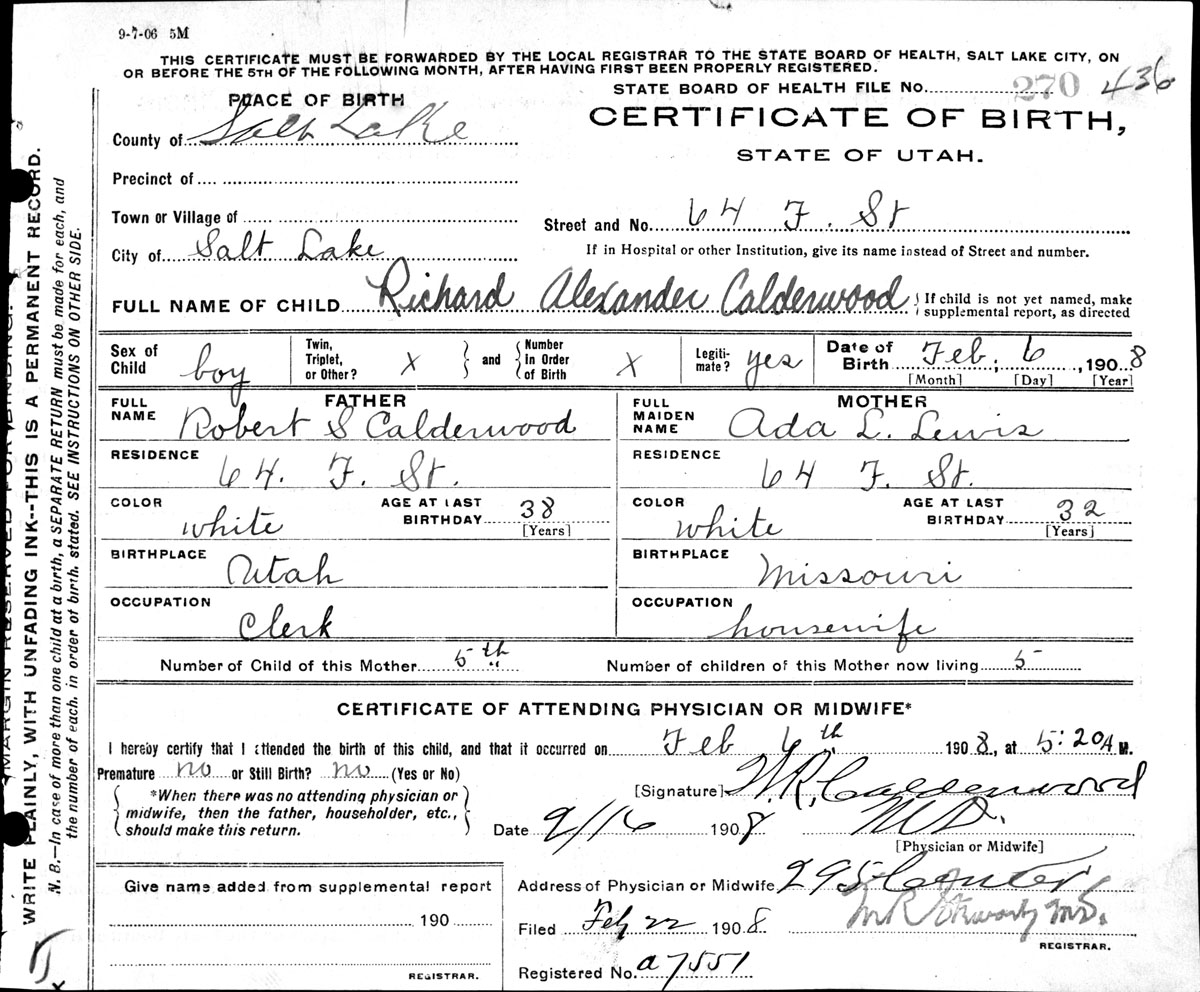 9-7-06 5M
THIS CERTIFICATE MUST BE FORWARDED BY THE LOCAL REGISTRAR TO THE STATE BOARD OF HEALTH, SALT LAKE CITY, ON
OR BEFORE THE 5TH OF THE FOLLOWING MONTH, AFTER HAVING FIRST BEEN PROPERLY REGISTERED.
STATE BOARD OF HEALTH FILE No. 270 436
PLACE OF BIRTH
County of Salt Lake
CERTIFICATE OF BIRTH,
STATE OF UTAH.
Precinct of
Town or Village of
Street and No. 64 F. St
City of Salt Lake
If in Hospital or other Institution, give its name instead of Street and number.
FULL NAME OF CHILD Richard Alexander Calderwood
If child is not yet named, make
supplemental report, as directed
Sex of Child boy
Twin, Triplet, or Other? X
and Number in Order of Birth X
Legiti-mate? yes
Date of Birth Feb. 6, 1908
[Month] [Day] [Year]
FATHER
FULL NAME Robert S Calderwood
RESIDENCE 64. F. St.
COLOR white
AGE AT LAST BIRTHDAY 38
[Years]
BIRTHPLACE Utah
OCCUPATION Clerk
MOTHER
FULL MAIDEN NAME Ada L. Lewis
RESIDENCE 64 F. St.
COLOR white
AGE AT LAST BIRTHDAY 32
[Years]
BIRTHPLACE Missouri
OCCUPATION housewife
Number of Child of this Mother 5th
Number of children of this Mother now living 5
CERTIFICATE OF ATTENDING PHYSICIAN OR MIDWIFE*
I hereby certify that I attended the birth of this child, and that it occurred on Feb 6th 1908, at 5:20 A M.
Premature no or Still Birth? no (Yes or No)
*When there was no attending physician or
midwife, then the father, householder, etc.,
should make this return.
[Signature] W. R. Calderwood
M D.
Date 2/16 1908
[Physician or Midwife]
Give name added from supplemental report
190
REGISTRAR.
Address of Physician or Midwife 295 Center
Filed Feb 22 1908
REGISTRAR.
Registered No. a7551
MARGIN RESERVED FOR BINDING.
WRITE PLAINLY, WITH UNFADING INK--THIS IS A PERMANENT RECORD.
N. B.—In case of more than one child at a birth, a SEPARATE RETURN must be made for each, and
the number of each. in order of birth. stated. SEE INSTRUCTIONS ON OTHER SIDE.